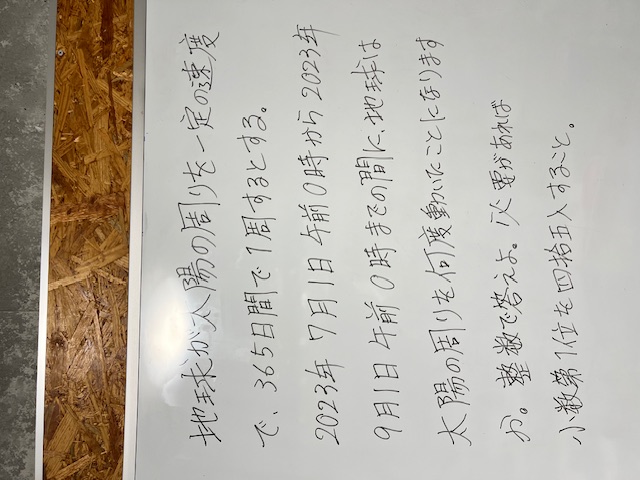 地球が太陽の周りを一定の速度
で、365日間で1周するとする。
2023年 7月1日 午前0時から2023年
9月1日 午前0時までの間に、地球は
太陽の周りを何度動いたことになります
か。整数で答えよ。必要があれば
小数第1位を四捨五入すること。